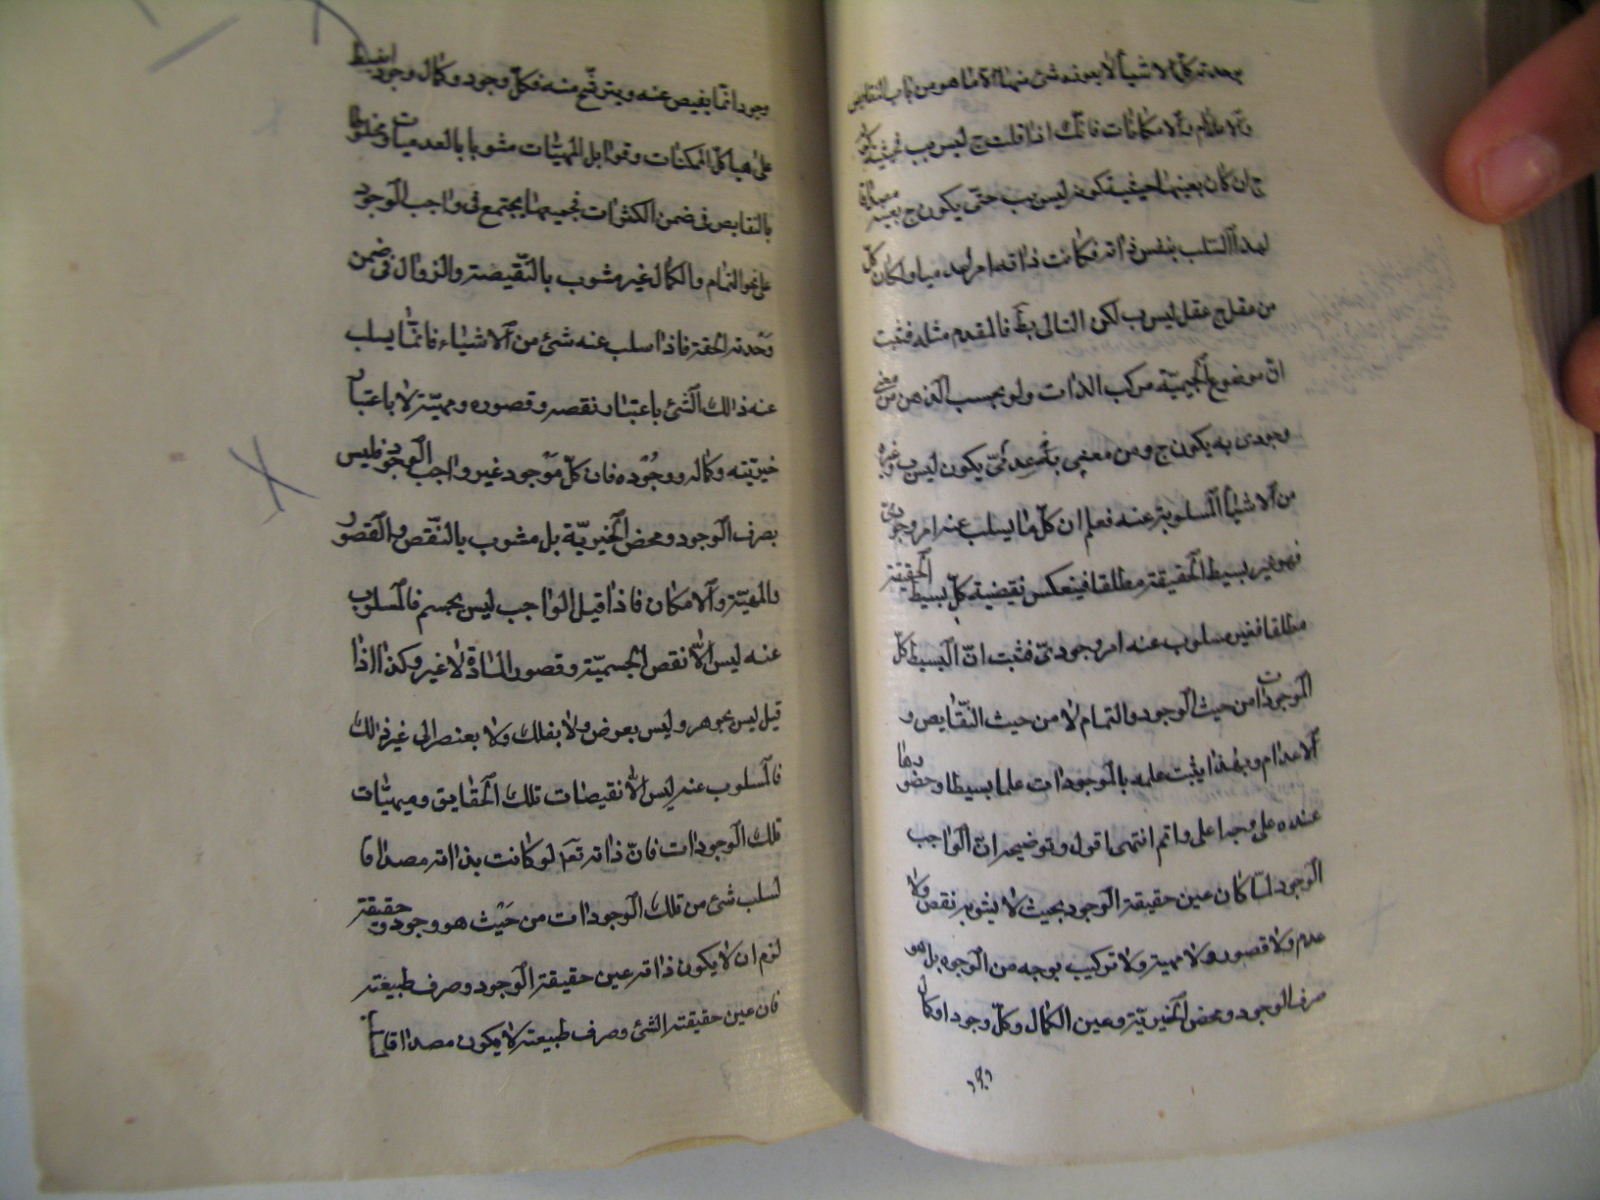 بوحدته كل الاشياء لا يعوزه شئ منها الا ما هو من باب النقايص
والاعدام والامكانات فانك اذا قلت ج ليس ب فحيثية كون
ج ان كان بعينها حيثية كونه ليس ب حتى يكون ج بعينه مصداقا
لهذا السلب بنفس ذاته فكانت ذاته امرا عدميا ولكان كل
من عقل ج عقل ليس ب لكن التالى بط فالمقدم مثله فثبت
ان موضوع الجيمية مركب الذات ولو بحسب الذهن من معنى
وجودى به يكون ج ومن معنى به عدمى يكون ليس ب وغيره
من الاشياء المسلوبة عنه فعلم ان كل ما يسلب عنه امر وجودى
فهو غير بسيط الحقيقة مطلقا فينعكس نقيضه كل بسيط الحقيقة
مطلقا فغير مسلوب عنه امر وجودى فثبت ان البسيط كل
الموجودات من حيث الوجود والتمام لا من حيث النقايص و
الاعدام وبهذا يثبت علمه بالموجودات علما بسيطا وحضورها
عنده على وجه اعلى واتم انتهى اقول وتوضيحه ان الواجب
الوجود لما كان عين حقيقة الوجود بحيث لا يشوبه نقص ولا
عدم ولا قصور ولا مهية ولا تركيب بوجه من الوجوه بل هو
صرف الوجود ومحض الخيرية وعين الكمال وكل وجود او كمال
وجود انما يفيض عنه ويترشح منه فكل وجود وكمال وجود انبسط
على هياكل الممكنات وقوابل المهيات مشوبا بالعدميات ومخلوطا
بالنقايص فى ضمن الكثرات فجميعها يجتمع فى واجب الوجود
على نحو التمام والكمال غير مشوب بالنقيصة والزوال فى ضمن
وحدته الحقة فاذا سلب عنه شئ من الاشياء فانما يسلب
عنه ذلك الشئ باعتبار نقصه وقصوره ومهيته لا باعتبار
خيريته وكماله ووجوده فان كل موجود غير واجب الوجود فليس
بصرف الوجود ومحض الخيرية بل مشوب بالنقص والقصور
والمهية والامكان فاذا قيل الواجب ليس بجسم فالمسلوب
عنه ليس الا نقص الجسمية وقصور المادة لا غير وكذا اذا
قيل ليس بجوهر وليس بعرض ولا بفلك ولا بعنصر الى غير ذلك
فالمسلوب عنه ليس الا نقيصات تلك الحقايق ومهيات
تلك الوجودات فان ذاته تعم لو كانت بذاته مصداقا
لسلب شئ من تلك الوجودات من حيث هو وجود وحقيقة
لزم ان لا يكون ذاته عين حقيقة الوجود وصرف طبيعته
فان عين حقيقة الشئ وصرف طبيعته لا يكون مصداقا